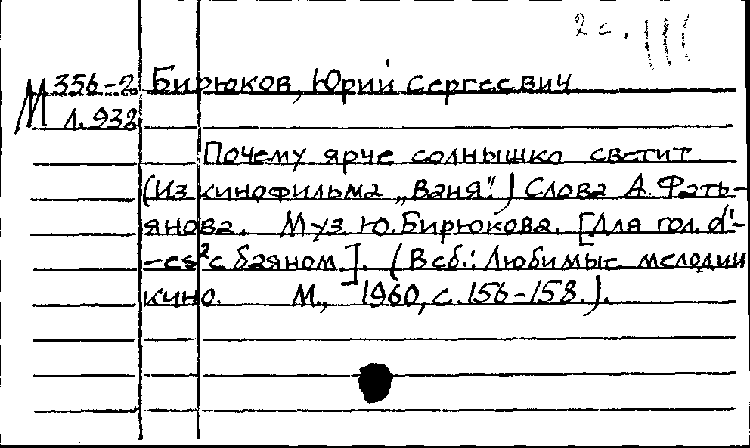 2 с.
М 356-2 Бирюков, Юрий Сергеевич
Л.932
Почему ярче солнышко светит
(Из кинофильма „Ваня".) Слова А. Фать-
янова. Муз Ю. Бирюкова. [Для гол. d'-
-es² с баяном.]. (В сб.: Любимые мелодии
кино. М., 1960, с. 156-158.).